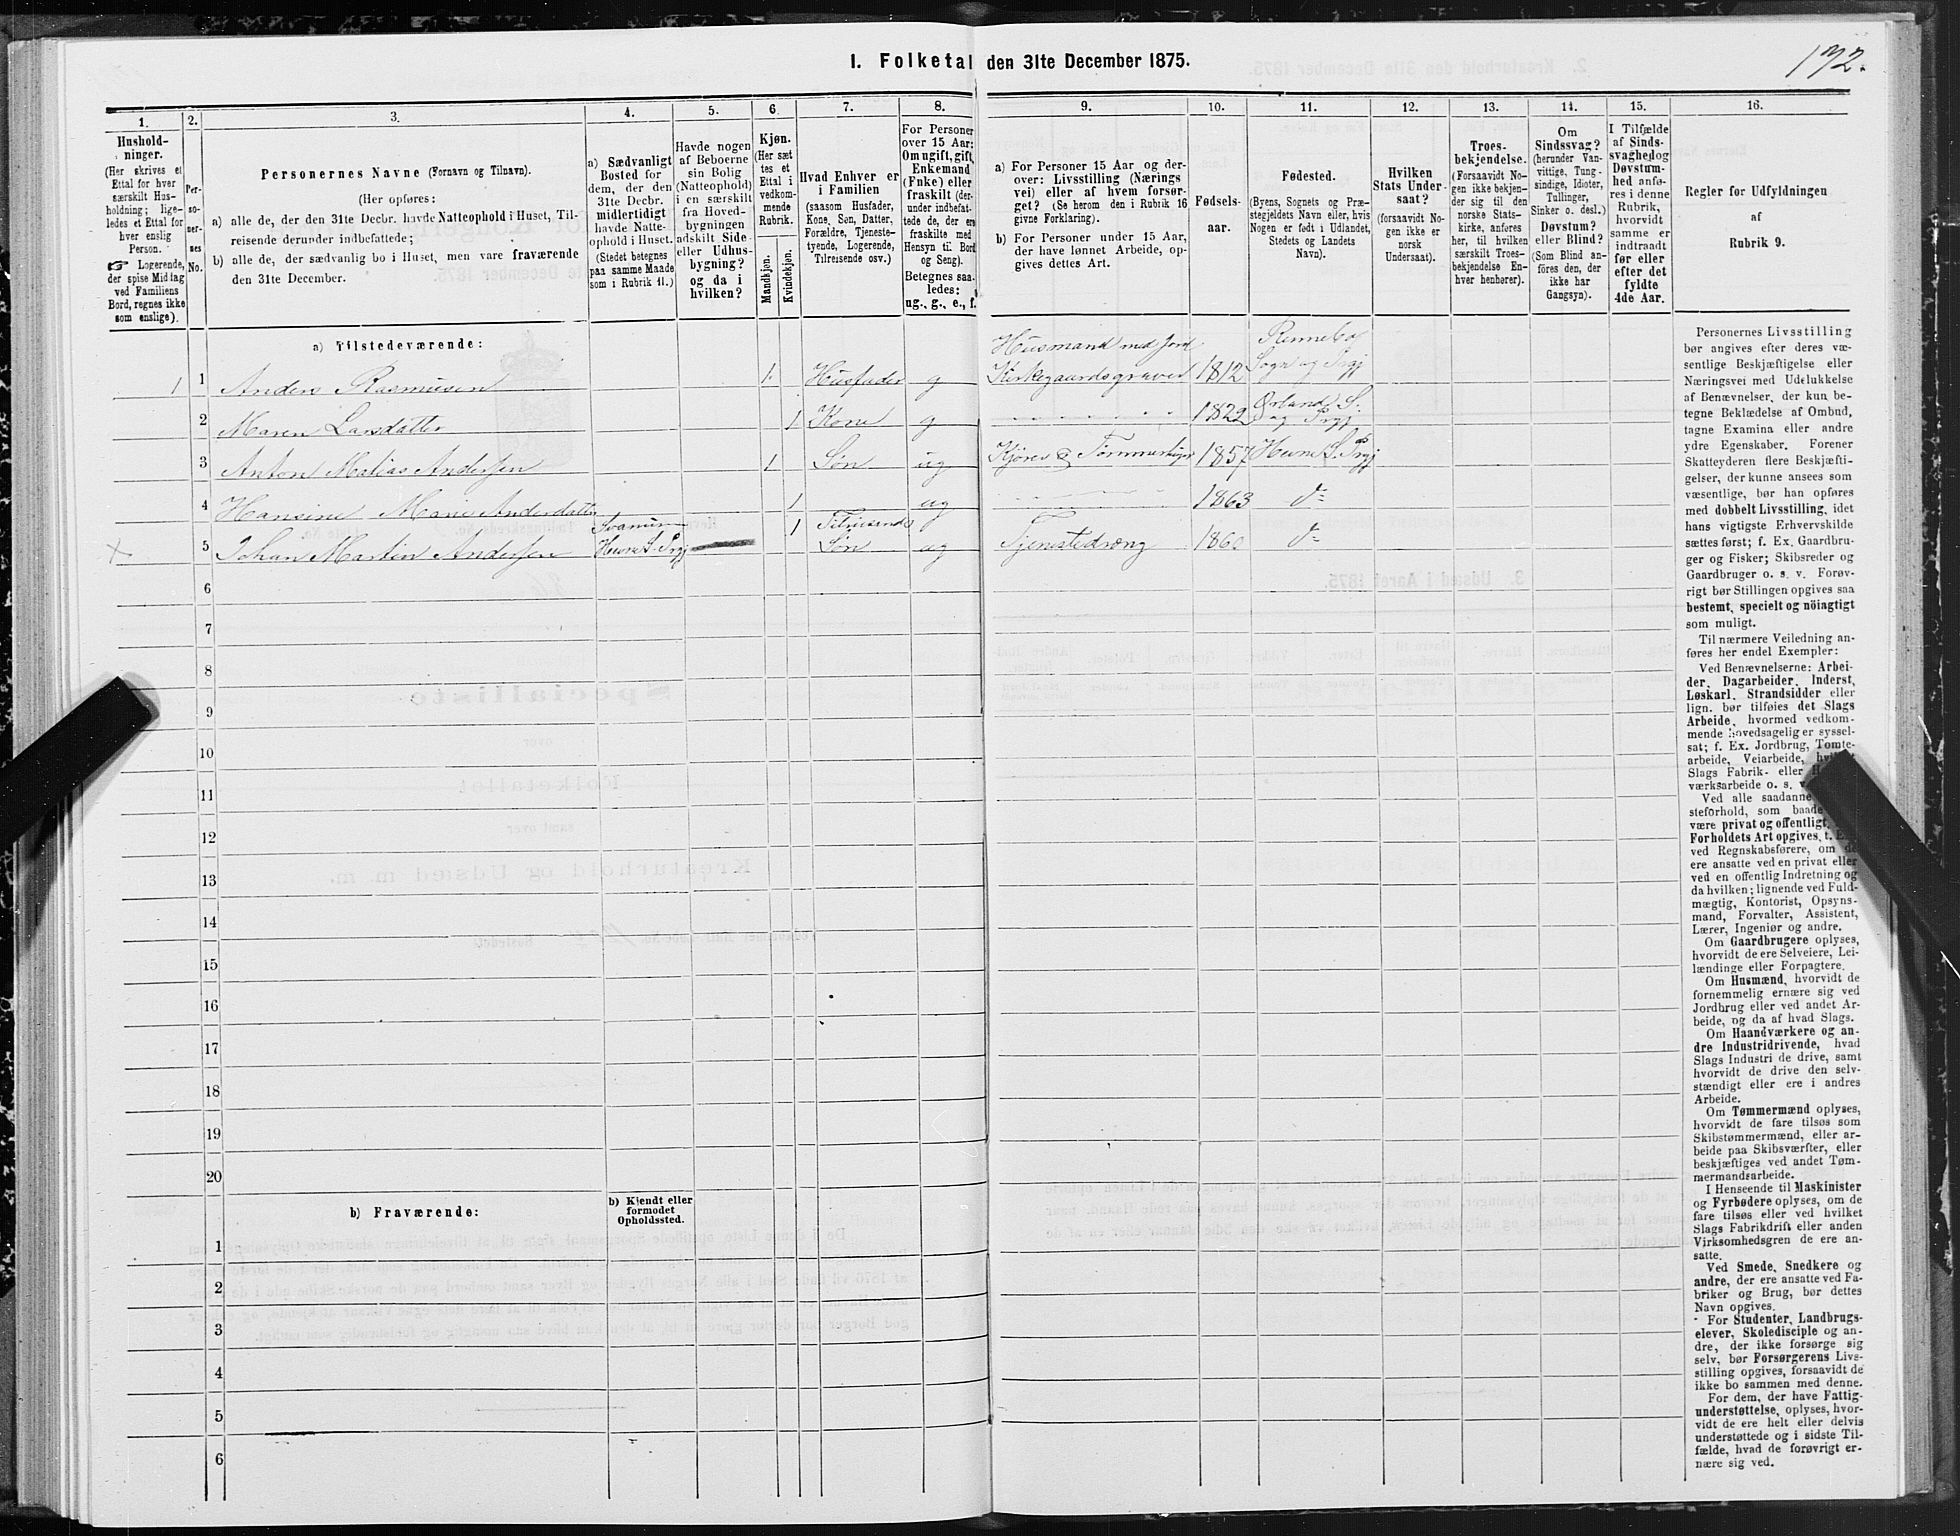 172.
I. Folketal den 31te December 1875.
1.
Hushold-
ninger.
(Her skrives et
Ettal for hver
særskilt Hus-
holdning; lige-
ledes et Ettal for
hver enslig
Person.
Logerende,
der spise Middag
ved Familiens
Bord, regnes ikke
som enslige).
2.
Per-
so-
ner-
nes
No.
3.
Personernes Navne (Fornavn og Tilnavn).
(Her opføres:
a) alle de, der den 31te Decbr. havde Natteophold i Huset, Til-
reisende derunder indbefattede;
b) alle de, der sædvanlig bo i Huset, men vare fraværende
den 31te December.
4.
a) Sædvanligt
Bosted for
dem, der den
31te Decbr.
midlertidigt
havde Natte-
ophold i Huset.
(Stedet betegnes
paa samme Maade
som i Rubrik 11.)
5.
Havde nogen
af Beboerne
sin Bolig
(Natteophold)
i en særskilt
fra Hoved-
bygningen
adskilt Side-
eller Udhus-
bygning?
og da i
hvilken?
6.
Kjøn.
(Her sæt-
tes et
Ettal i
vedkom-
mende
Rubrik.
Mandkjøn.
Kvindekjøn.
7.
Hvad Enhver er
i Familien
(saasom Husfader,
Kone, Søn, Datter,
Forældre, Tjeneste-
tyende, Logerende,
Tilreisende osv.)
8.
For Personer
over 15 Aar:
Om ugift, gift,
Enkemand
(Enke) eller
fraskilt (der-
under indbefat-
tede de, der ere
fraskilte med
Hensyn til Bord
og Seng).
Betegnes saa-
ledes:
ug., g., e., f.
9.
a) For Personer 15 Aar og der-
over: Livsstilling (Nærings
vei) eller af hvem forsør-
get? (Se herom den i Rubrik 16
givne Forklaring).
b) For Personer under 15 Aar,
der have lønnet Arbeide, op-
gives dettes Art.
10.
Fødsels-
aar.
11.
Fødested.
(Byens, Sognets og Præ-
stegjeldets Navn eller, hvis
Nogen er født i Udlandet,
Stedets og Landets
Navn).
12.
Hvilken
Stats Under-
saat?
(forsaavidt No-
gen ikke er
norsk
Undersaat).
13.
Troes-
bekjendelse.
(Forsaavidt No-
gen ikke bekjen-
der sig til den
norske Stats-
kirke, anføres
her, til hvilken
særskilt Troes-
bekjendelse En-
hver henhører).
14.
Om
Sindssvag?
(herunder Van-
vittige, Tung-
sindige, Idioter,
Tullinger,
Sinker o. desl.)
Døvstum?
eller Blind?
(Som Blind an-
føres den, der
ikke har
Gangsyn).
15.
I Tilfælde
af Sinds-
svaghed og
Døvstum-
hed anfø-
res i denne
Rubrik,
hvorvidt
samme er
indtraadt
før eller
efter det
fyldte
4de Aar.
16.
Regler for Udfyldningen
af
Rubrik 9.
a) Tilstedeværende:
1 1 Anders Rasmusen 1. Husfader g Husmand med Jord Kirkegaardsgraver 1812 Rennebo Sogn og Prgj
2 Maren Larsdatter 1 Kone g 1822 Ørlands S. og Prgj
3 Anton Matias Andersen 1 Søn ug Kjører & 1857 Hevne S. Prgj
4 Hansine Marie Andersdatter 1 ug 1863 do
5 Johan Martin Andersen Hevne S. Prgj Tilreisende Søn ug Tjenestedreng 1860 do
6
7
8
9
10
11
12
13
14
15
16
17
18
19
20
b) Fraværende:
b) Kjendt eller
formodet
Opholdssted.
1
2
3
4
5
6
Personernes Livsstilling
bør angives efter deres væ-
sentlige Beskjæftigelse eller
Næringsvei med Udelukkelse
af Benævnelser, der kun be-
tegne Beklædelse af Ombud,
tagne Examina eller andre
ydre Egenskaber. Forener
Skatteyderen flere Beskjæfti-
gelser, der kunne ansees som
væsentlige, bør han opføres
med dobbelt Livsstilling, idet
hans vigtigste Erhvervskilde
sættes først; f. Ex. Gaardbru-
ger og Fisker; Skibsreder og
Gaardbruger o. s. v. Forøv-
rigt bør Stillingen opgives saa
bestemt, specielt og nöiagtigt
som muligt.
Til nærmere Veiledning an-
føres her endel Exempler:
Ved Benævnelserne: Arbei-
der, Dagarbeider, Inderst,
Løskarl, Strandsidder eller
lign. bør tilføies det Slags
Arbeide, hvormed vedkom-
mende hovedsagelig er syssel-
sat; f. Ex. Jordbrug, Tomte-
arbeide, Veiarbeide,
Slags Fabrik- eller
værksarbeide o. s.
Ved alle saadanne
steforhold, som baade
være privat og offentligt,
Forholdets Art opgives, t.
ved Regnskabsførere, om de
ere ansatte ved en privat eller
ved en offentlig Indretning og
da hvilken; lignende ved Fuld-
mægtig, Kontorist, Opsyns-
mand, Forvalter, Assistent,
Lærer, Ingeniør og andre.
Om Gaardbrugere oplyses,
hvorvidt de ere Selveiere, Lei-
lændinge eller Forpagtere.
Om Husmænd, hvorvidt de
fornemmelig ernære sig ved
Jordbrug eller ved andet Ar-
beide, og da af hvad Slags.
Om Haandværkere og an-
dre Industridrivende, hvad
Slags Industri de drive, samt
hvorvidt de drive den selv-
stændigt eller ere i andres
Arbeide.
Om Tømmermænd oplyses,
hvorvidt de fare tilsøs som
Skibstømmermænd, eller ar-
beide paa Skibsværfter, eller
beskjæftiges ved andet Tøm-
mermandsarbeide.
I Henseende til Maskinister
og Fyrbødere oplyses, om de
fare tilsøs eller ved hvilket
Slags Fabrikdrift eller anden
Virksomhedsgren de ere an-
satte.
Ved Smede, Snedkere og
andre, der ere ansatte ved Fa-
briker og Brug, bør dettes
Navn opgives.
For Studenter, Landbrugs-
elever, Skoledisciple og an-
dre, der ikke forsørge sig
selv, bør Forsørgerens Livs-
stilling opgives, forsaavidt de
ikke bo sammen med denne.
For dem, der have Fattig-
understøttelse, oplyses, hvor-
vidt de ere helt eller delvis
understøttede og i sidste Til-
fælde, hvad de forøvrigt er-
nære sig ved.